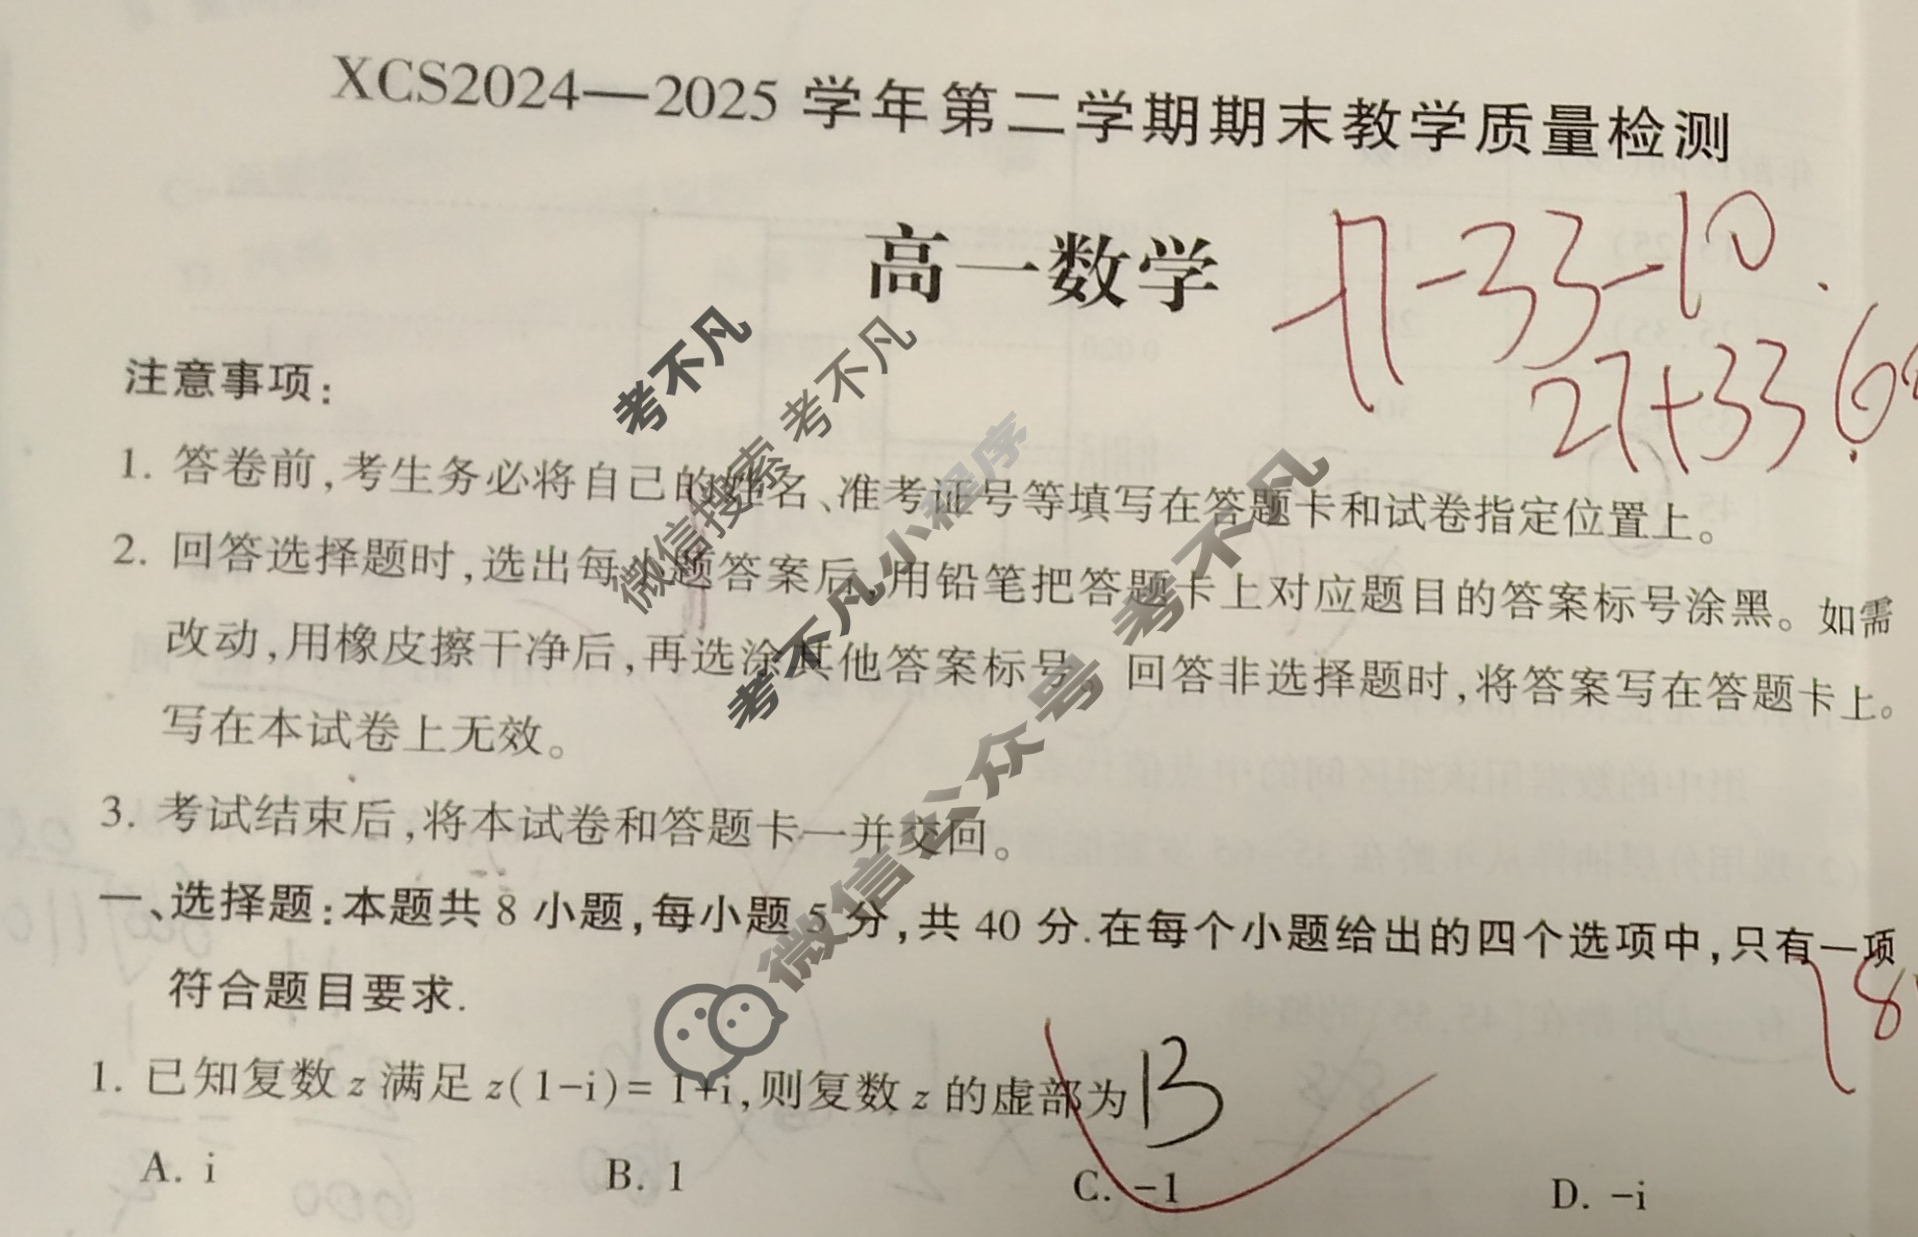 XCS2024—2025学年第二学期期末教学质量检测
高一数学
-17-33-10
27+33
注意事项:
1. 答卷前,考生务必将自己的姓名、准考证号等填写在答题卡和试卷指定位置上。
2. 回答选择题时,选出每小题答案后,用铅笔把答题卡上对应题目的答案标号涂黑。如需
改动,用橡皮擦干净后,再选涂其他答案标号。回答非选择题时,将答案写在答题卡上。
写在本试卷上无效。
3. 考试结束后,将本试卷和答题卡一并交回。
一、选择题:本题共8小题,每小题5分,共40分.在每个小题给出的四个选项中,只有一项
符合题目要求.
1. 已知复数z满足z(1-i)=1+i,则复数z的虚部为 B
A. i B. 1 C. -1 D. -i
考不凡
微信搜索 考不凡
考不凡小程序
微信公众号 考不凡